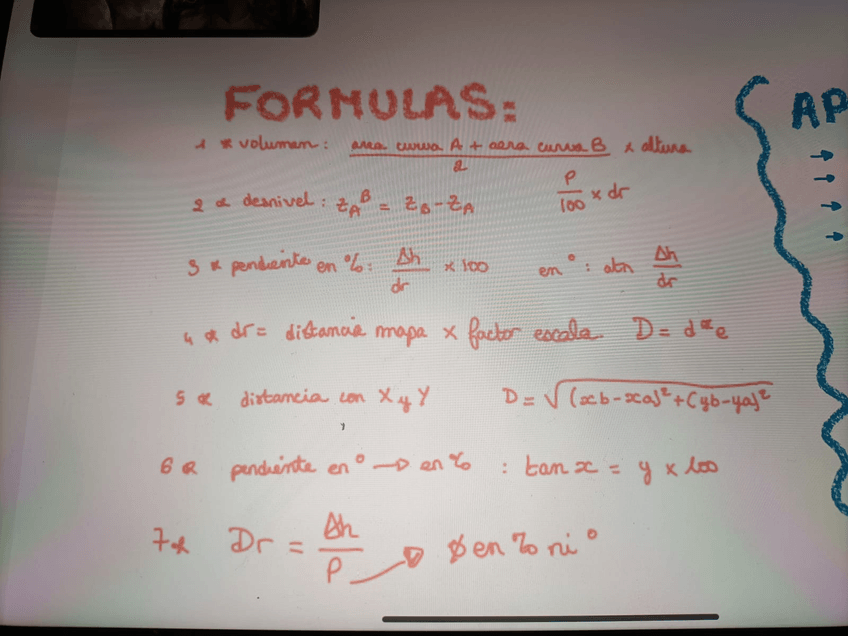 FORMULAS:
1 * volumen: (area curva A + aera curva B) / 2 x altura
2 * desnivel: Z_A^B = Z_B - Z_A    P/100 x dr
3 * pendiente en %: Δh/dr x 100    en °: atn Δh/dr
4 * dr = distancia mapa x factor escala. D = d*e
5 * distancia con X y Y    D = √(xb-xa)²+(yb-ya)²
6 * pendiente en ° → en % : tan x = y x 100
7* Dr = Δh/P → ∅ en % ni °
AP